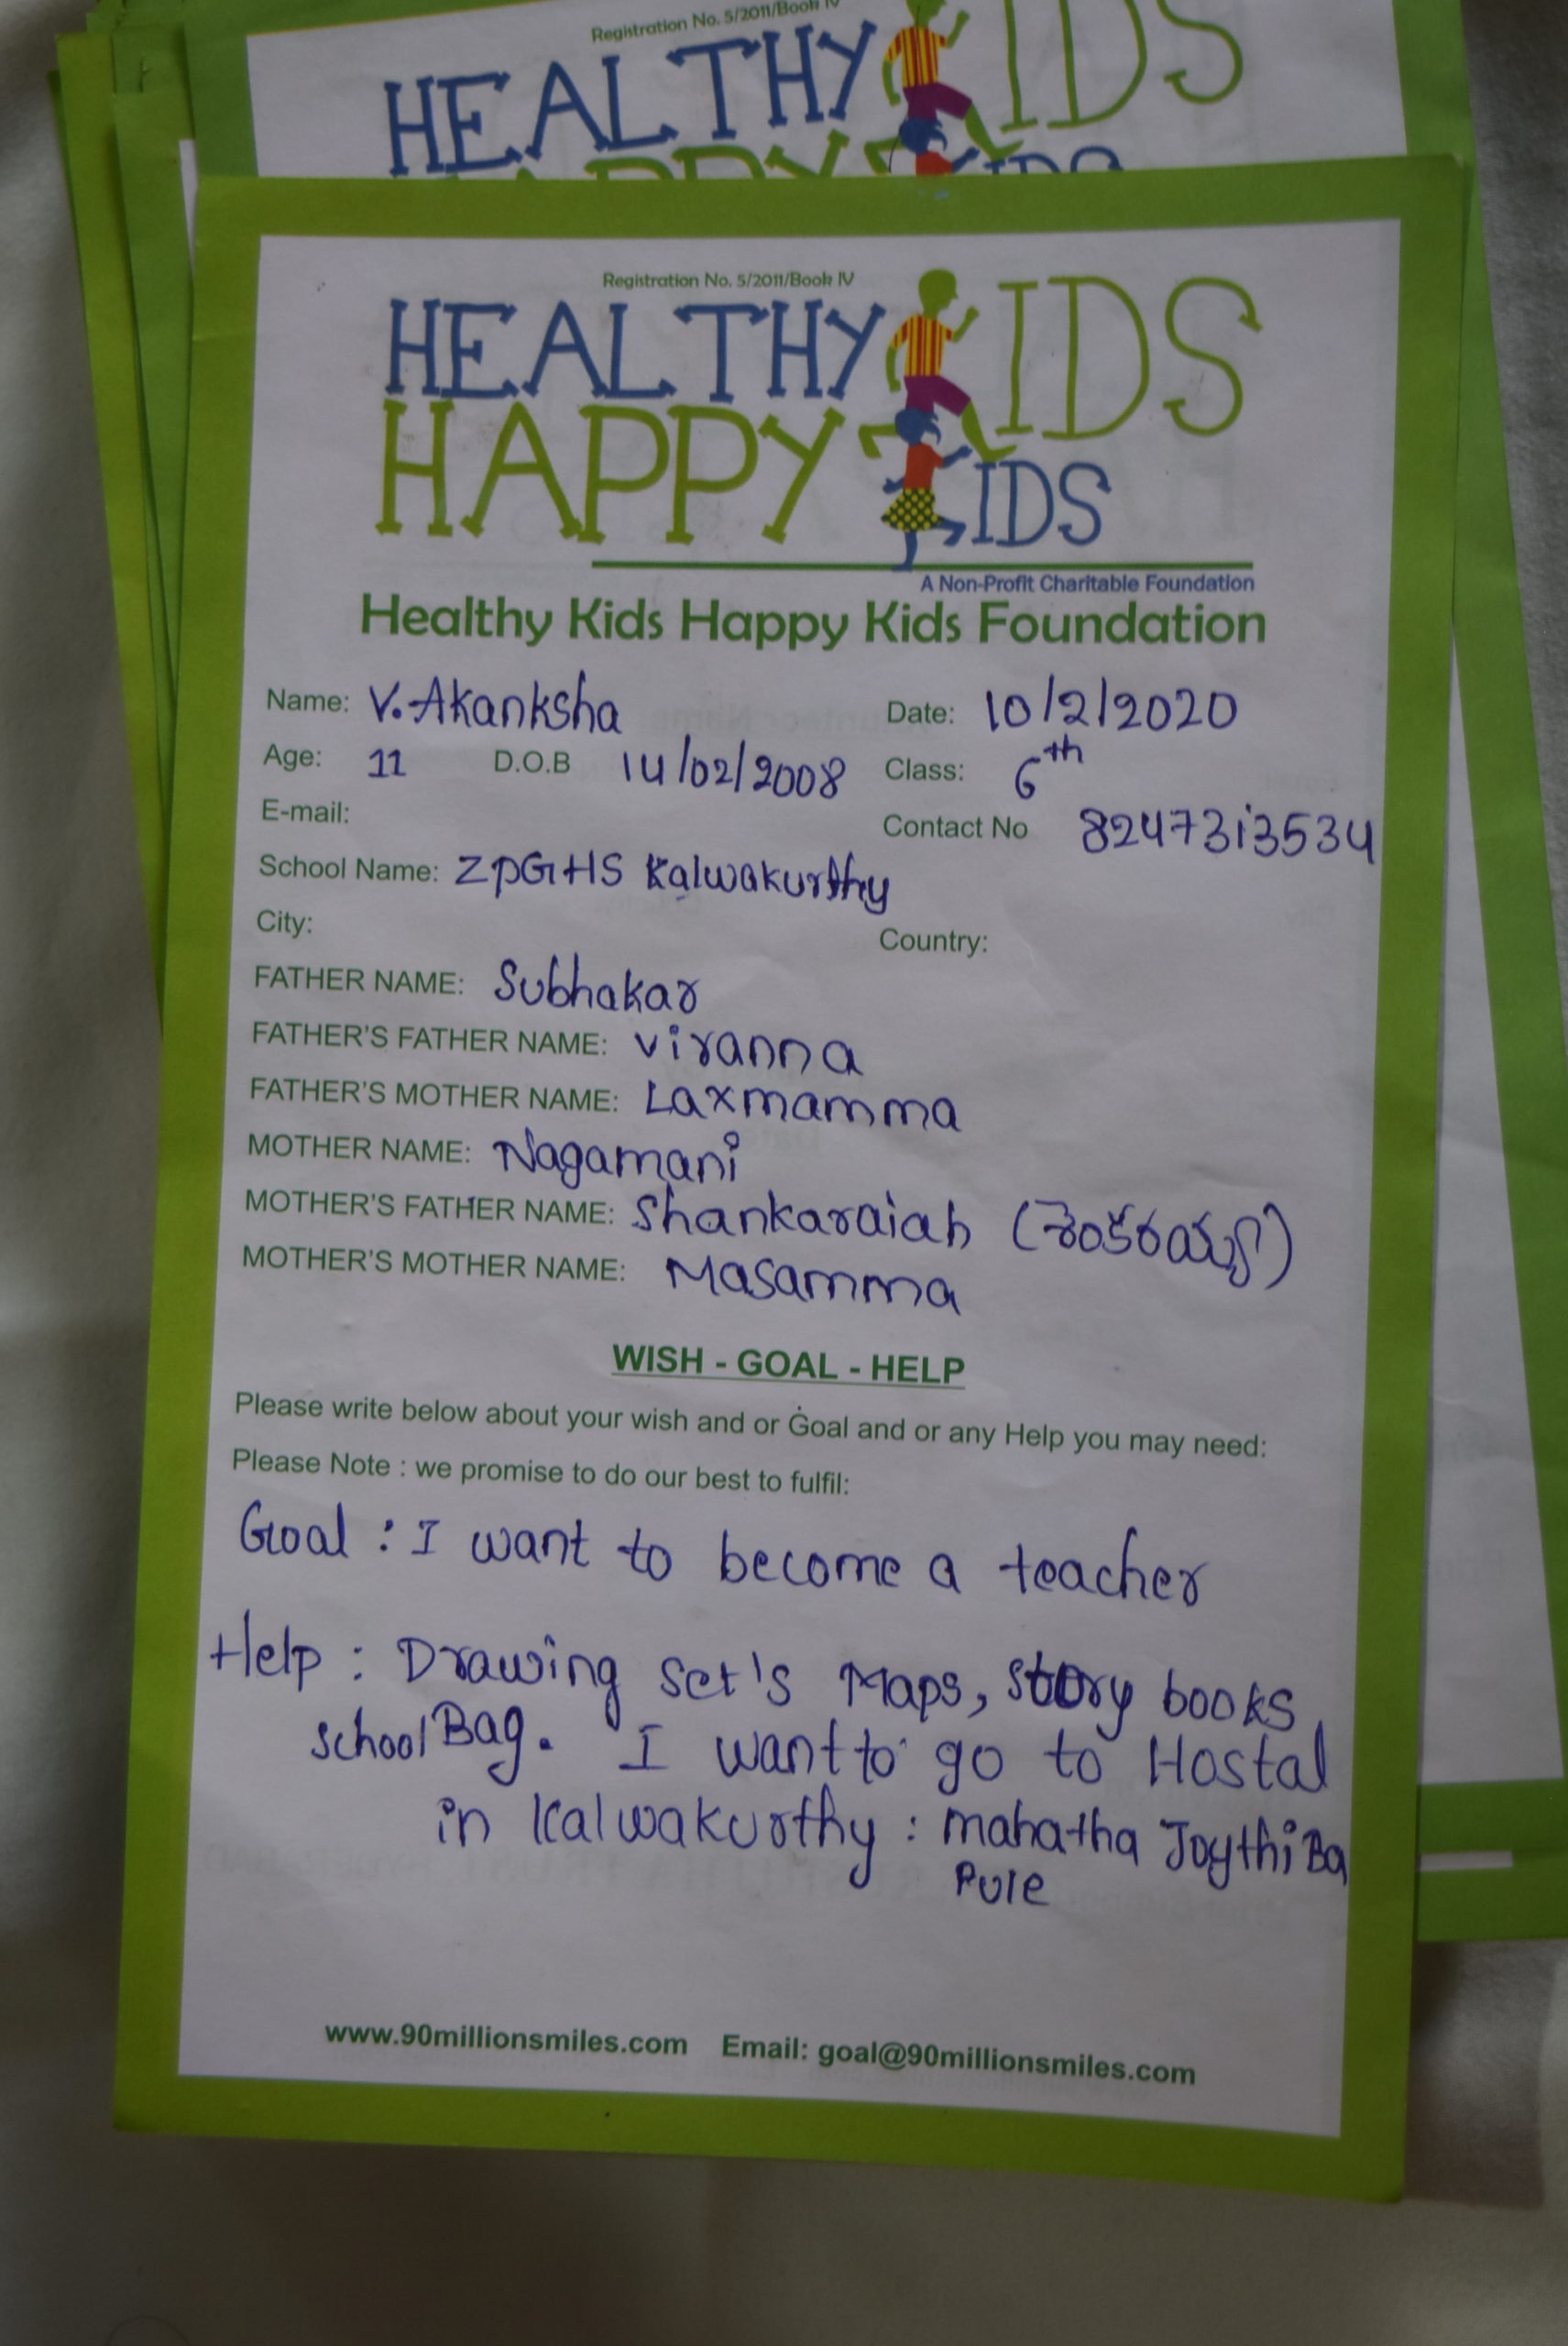 Registration No. 5/2011/Book IV
HEALTHY KIDS
HAPPY KIDS
Registration No. 5/2011/Book IV
HEALTHY KIDS
HAPPY KIDS
A Non-Profit Charitable Foundation
Healthy Kids Happy Kids Foundation
Name: V. Akanksha Date: 10/2/2020
Age: 11 D.O.B 14/02/2008 Class: 6th
E-mail: Contact No 8247313534
School Name: ZPGHS Kalwakurthy
City: Country:
FATHER NAME: Subhakar
FATHER'S FATHER NAME: viranna
FATHER'S MOTHER NAME: Laxmamma
MOTHER NAME: Nagamani
MOTHER'S FATHER NAME: Shankaraiah (శంకరయ్య)
MOTHER'S MOTHER NAME: Masamma
WISH - GOAL - HELP
Please write below about your wish and or Goal and or any Help you may need:
Please Note : we promise to do our best to fulfil:
Goal : I want to become a teacher
Help : Drawing set's Maps, story books,
school Bag. I want to go to Hostal
in Kalwakurthy : mahatha Joythi Ba
Pule
www.90millionsmiles.com Email: goal@90millionsmiles.com